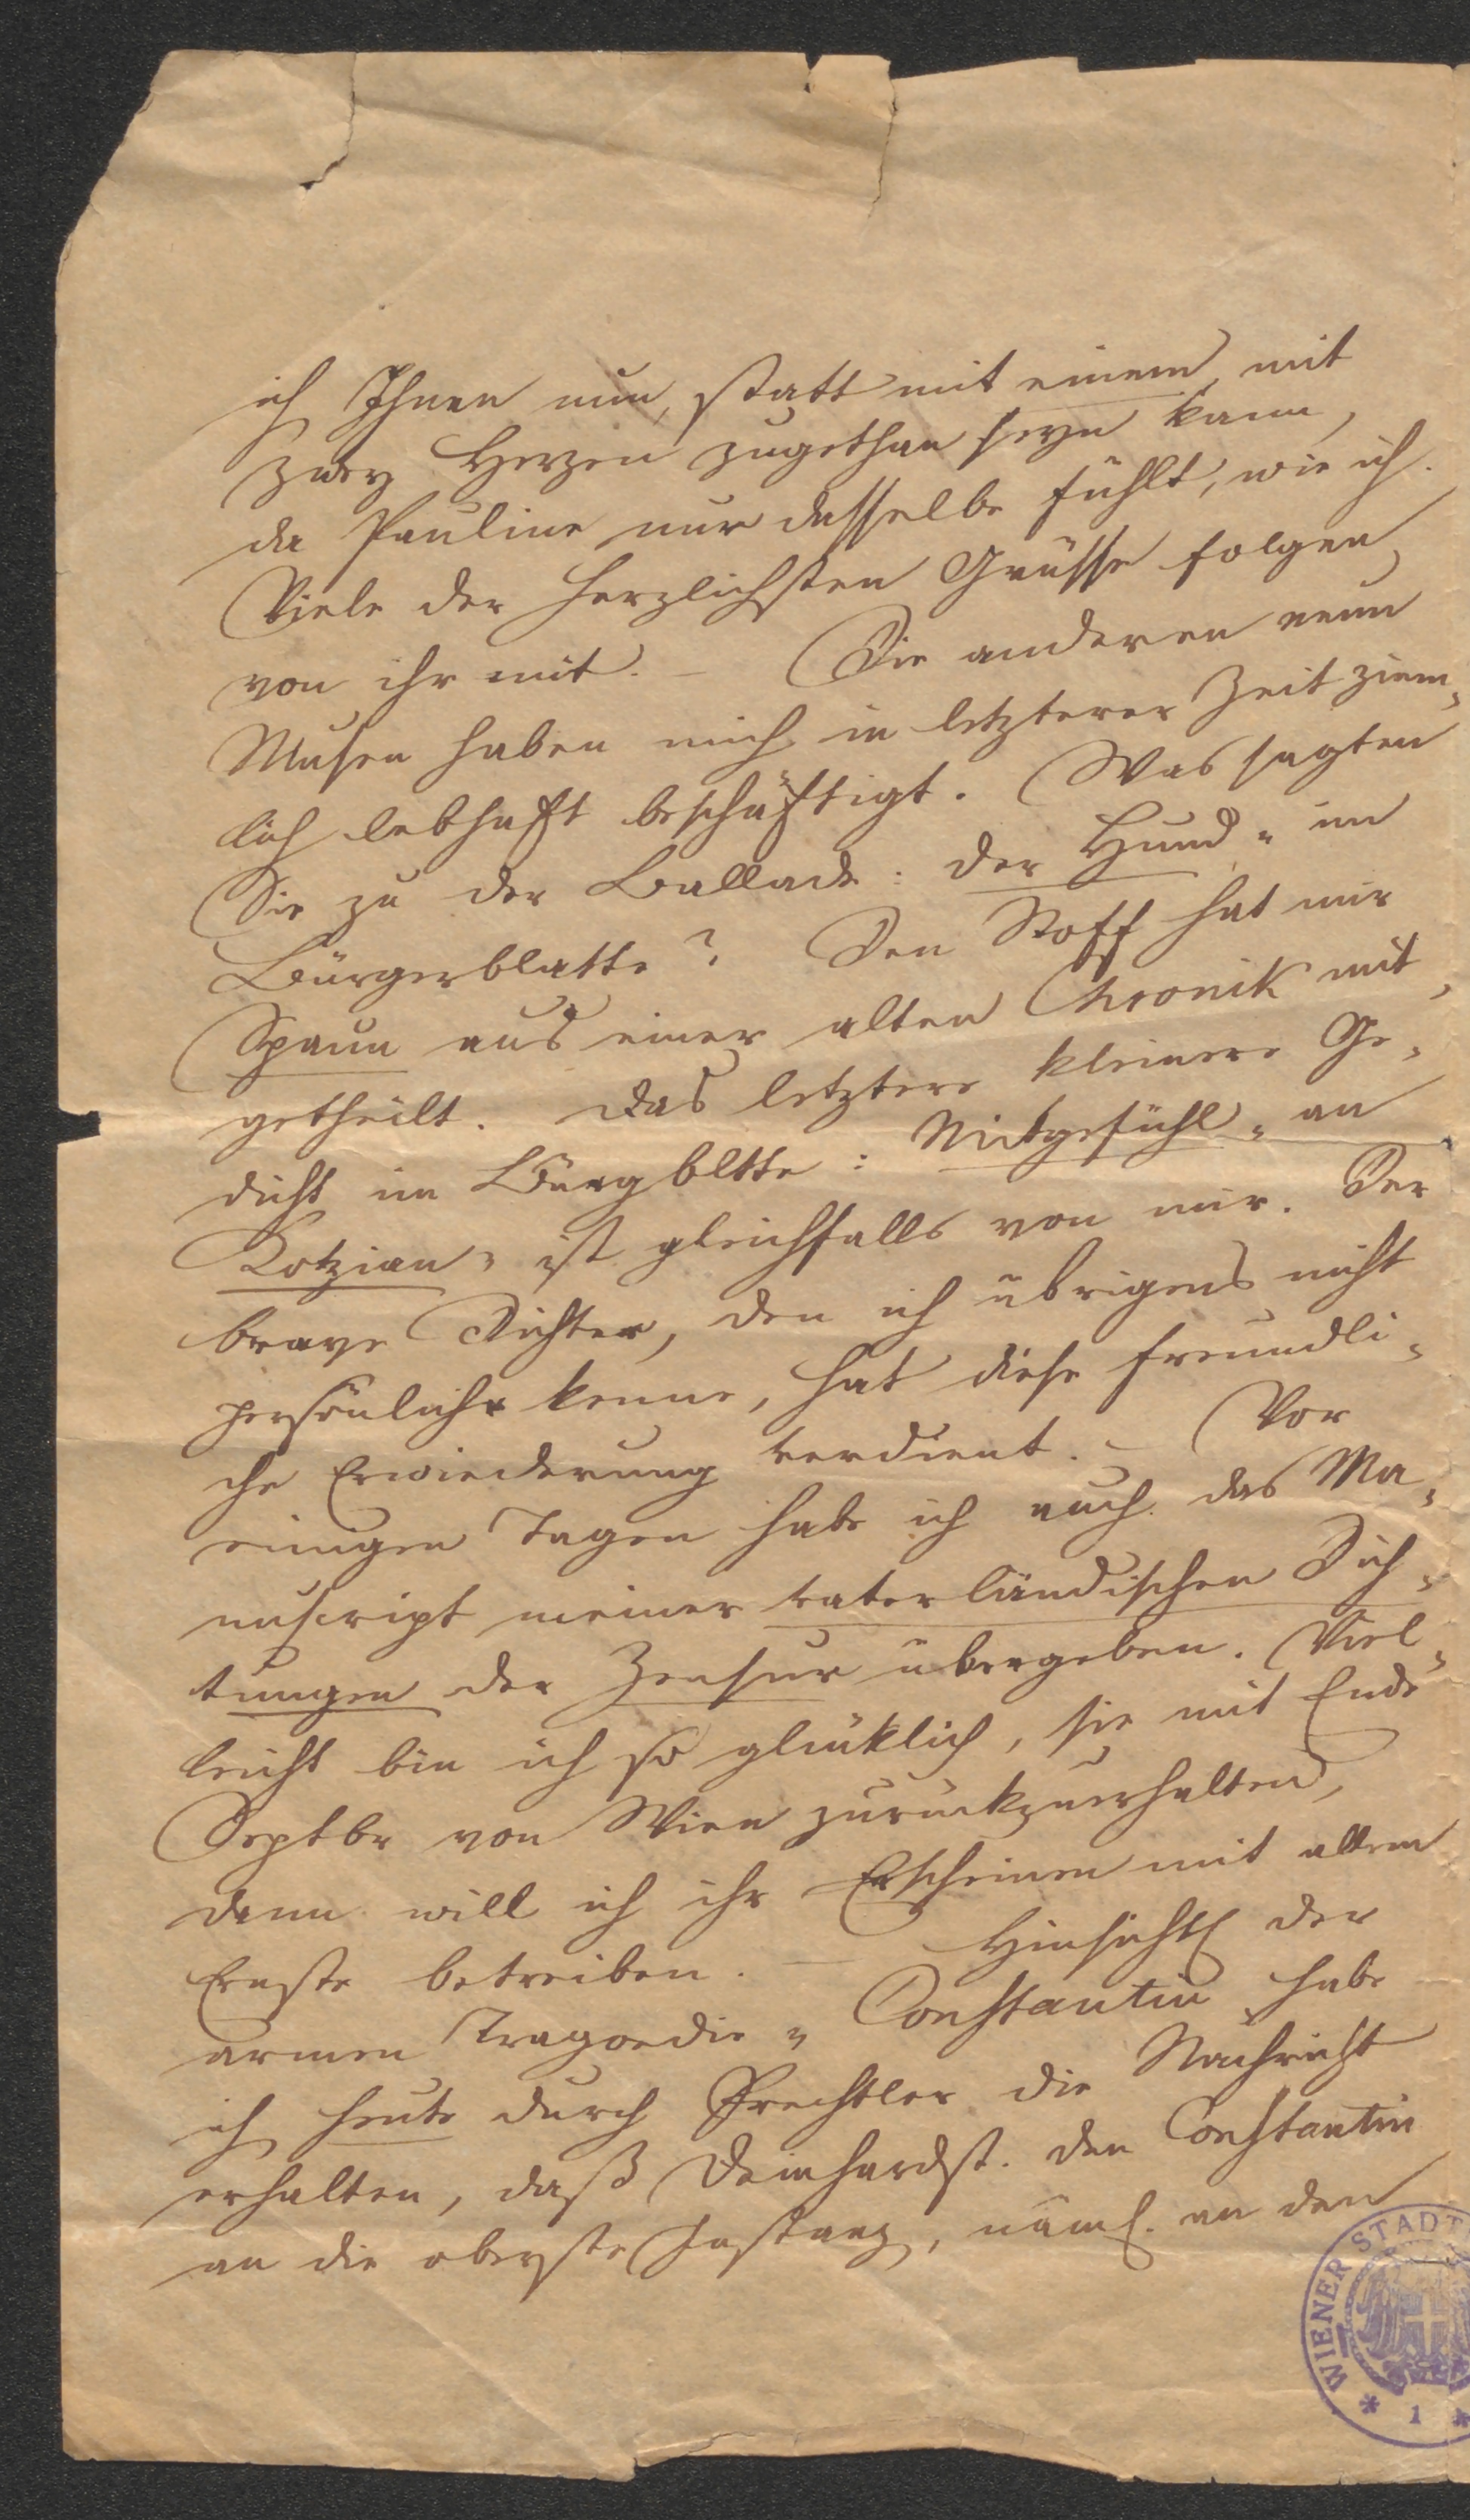 ich Ihnen nun, statt mit einem, mit
zwey Herzen zugethan seyn kann,
da Pauline nur dasselbe fühlt, wie ich.
Viele der herzlichsten Grüsse folgen
von ihr mit. – Die anderen neun
Musen haben mich in letzterer Zeit ziem„
lich lebhaft beschäftigt. Was sagten
Sie zu der Ballade: der Hund„ im
Bürgerblatte? Den Stoff hat mir
Spaun aus einer alten Chronik mit„
getheilt. Das letztere kleinere Ge„
dicht im Bürgbltte: Mitgefühl„ an
Kotzian„ ist gleichfalls von mir. Der
brave Dichter, den ich übrigens nicht
persönlich kenne, hat diese freundli„
che Erwiederung verdient. – Vor
einigen Tagen habe ich auch das Ma„
nuscript meiner vaterländischen Dich„
tungen der Zensur übergeben. Viel„
leicht bin ich so glücklich, sie mit Ende
Septbr von Wien zurückzuerhalten,
dann will ich ihr Erscheinen mit allem
Ernste betreiben. – Hinsichtl der
armen Tragoedie „Constantin habe
ich heute durch Prechtler die Nachricht
erhalten, daß Deinhardst. den Constantin
an die oberste Instanz, näml. an den
WIENER STADT
* 1 *